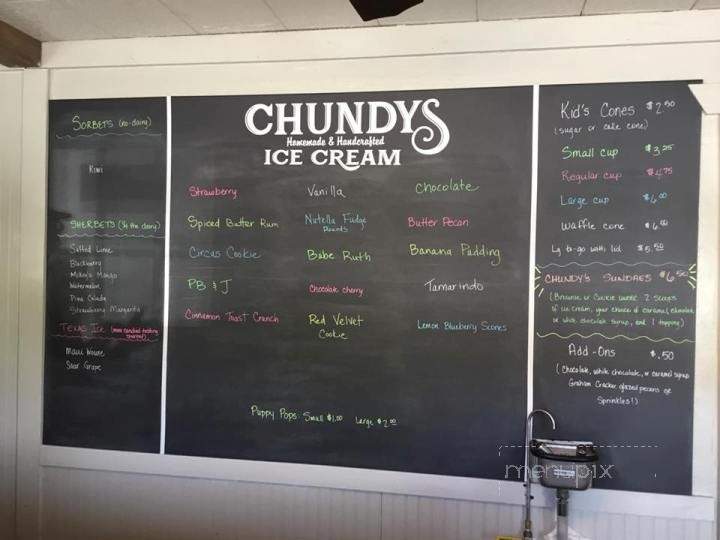 SORBETS (no-dairy)
Kiwi
SHERBETS (1/4 the dairy)
Salted Lime
Blackberry
Mango
Watermelon
Pina Colada
Strawberry Margarita
TEXAS ICE
Maui Wowie
Sour Grape
CHUNDYS
Homemade & Handcrafted
ICE CREAM
Strawberry Vanilla Chocolate
Spiced Butter Rum Nutella Fudge Butter Pecan
Circus Cookie Babe Ruth Banana Pudding
PB & J Chocolate cherry Tamarindo
Cinnamon Toast Crunch Red Velvet Lemon Blueberry Scones
Cookie
Puppy Pops: Small $1.00 Large $2.00
Kid's Cones $2.50
(sugar or cake cone)
Small cup $3.25
Regular cup $4.75
Large cup $6.00
Waffle cone $6.00
Lg to-go with lid $5.50
CHUNDY'S SUNDAES $6.50
(Brownie or Cookie with 2 scoops
of ice cream, your choice of caramel, chocolate
or white chocolate syrup, and 1 topping)
Add-Ons $.50
(Chocolate, white chocolate, or caramel syrup
Graham Cracker glazed pecans or
Sprinkles!)
menupix